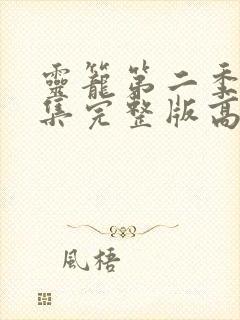 靈籠第二季
集完整版高
風梧